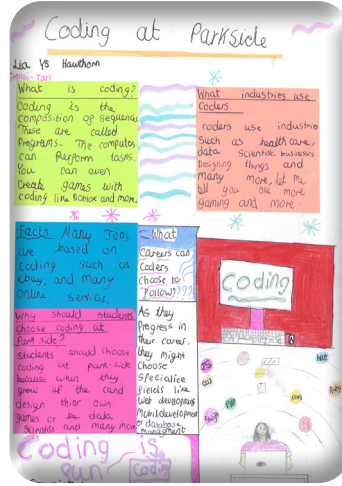 Coding at Parkside
Lia Y8 Hawthorn
What is coding?
Coding is the
composition of sequences
These are called
Programs. The computers
can Perform tasks.
You can even
Create games with
coding like Roblox and more.
What industries use
Coders.
coders use industrie
Such as health care,
data Scientist, businesses
Designing things and
many more, let me
tell you one more
gaming and more.
Facts Many
are based on
Coding such as
ebay, and many
Online Services.
What
Careers can
Coders
Choose to
Follow????
coding
Why should students
choose coding at
Parkside?
Students should choose
coding at park-side
because when they
grow up the cand
design thier own
games or be data
scientist and many more
As they
Progress in
Their career,
they might
choose
Specialize
fields like
Web development
Mobildevelopment
or database
managment
</>
Coding is
fun!
Coding